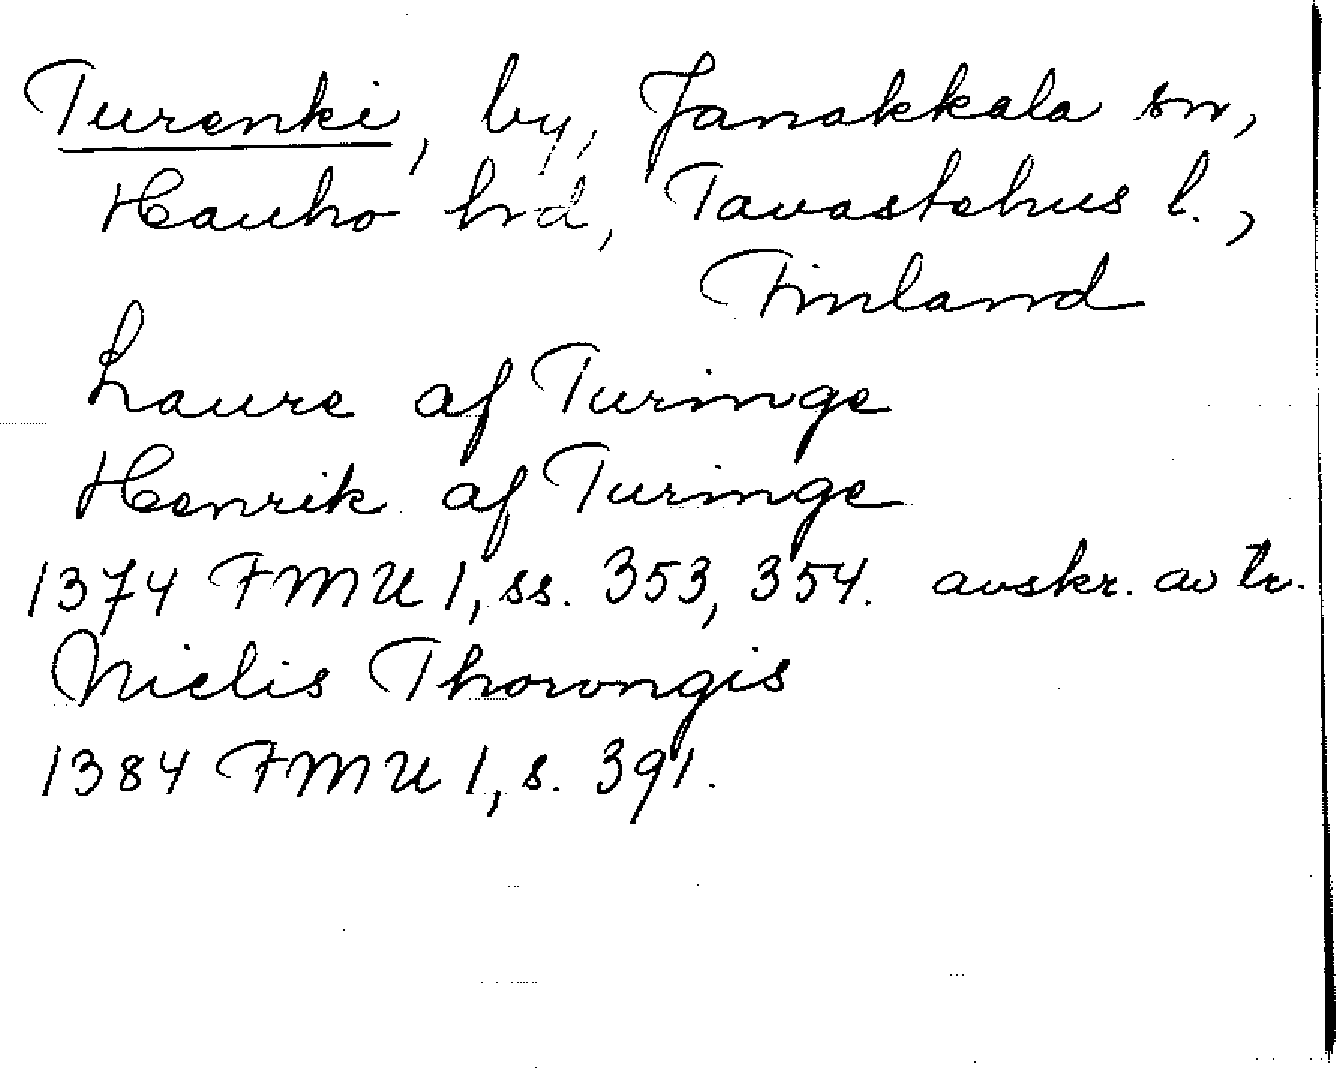 Turenki, by, Janakkala sn,
Hauho hrd, Tavastehus l.,
Finland
Laure af Turinge
Henrik af Turinge
1374 FMU 1, ss. 353, 354. avskr. av tr.
Nielis Thorongis
1384 FMU 1, s. 391.